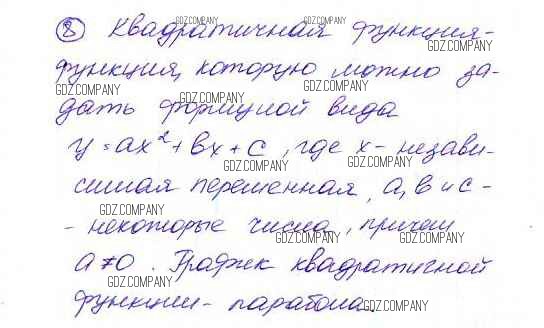 ⑧ Квадратичная функция-
функция, которую можно за-
дать формулой вида
y=ax²+bx+c, где x- незави-
симая переменная, a, b и c -
- некоторые числа, причем
a≠0. График квадратичной
функции- парабола.
GDZ.COMPANY
GDZ.COMPANY
GDZ.COMPANY
GDZ.COMPANY
GDZ.COMPANY
GDZ.COMPANY
GDZ.COMPANY
GDZ.COMPANY
GDZ.COMPANY
GDZ.COMPANY
GDZ.COMPANY
GDZ.COMPANY
GDZ.COMPANY
GDZ.COMPANY